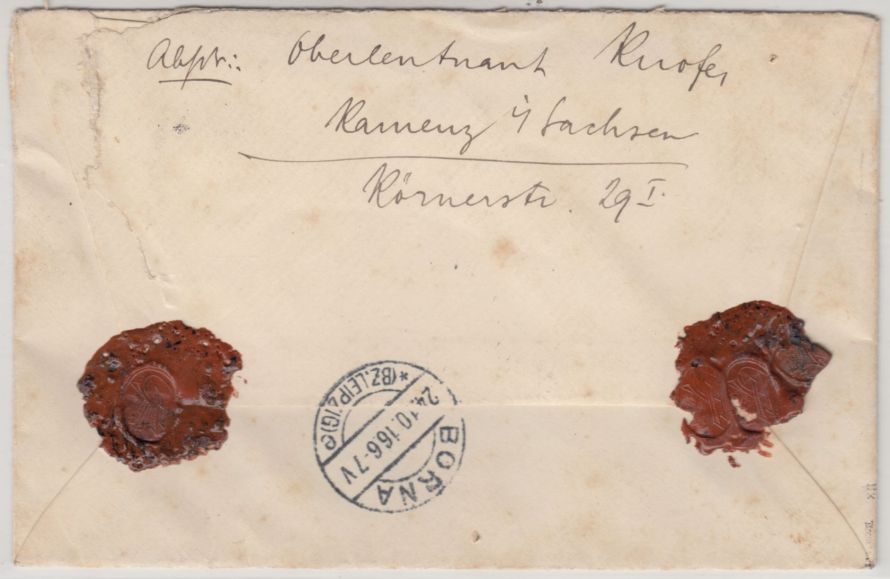 Abst.: Oberleutnant Knofe,
Kamenz i/Sachsen
Körnerstr. 29 I.
BORNA
24.10.16.6-7V
*(BZ.LEIPZIG)c